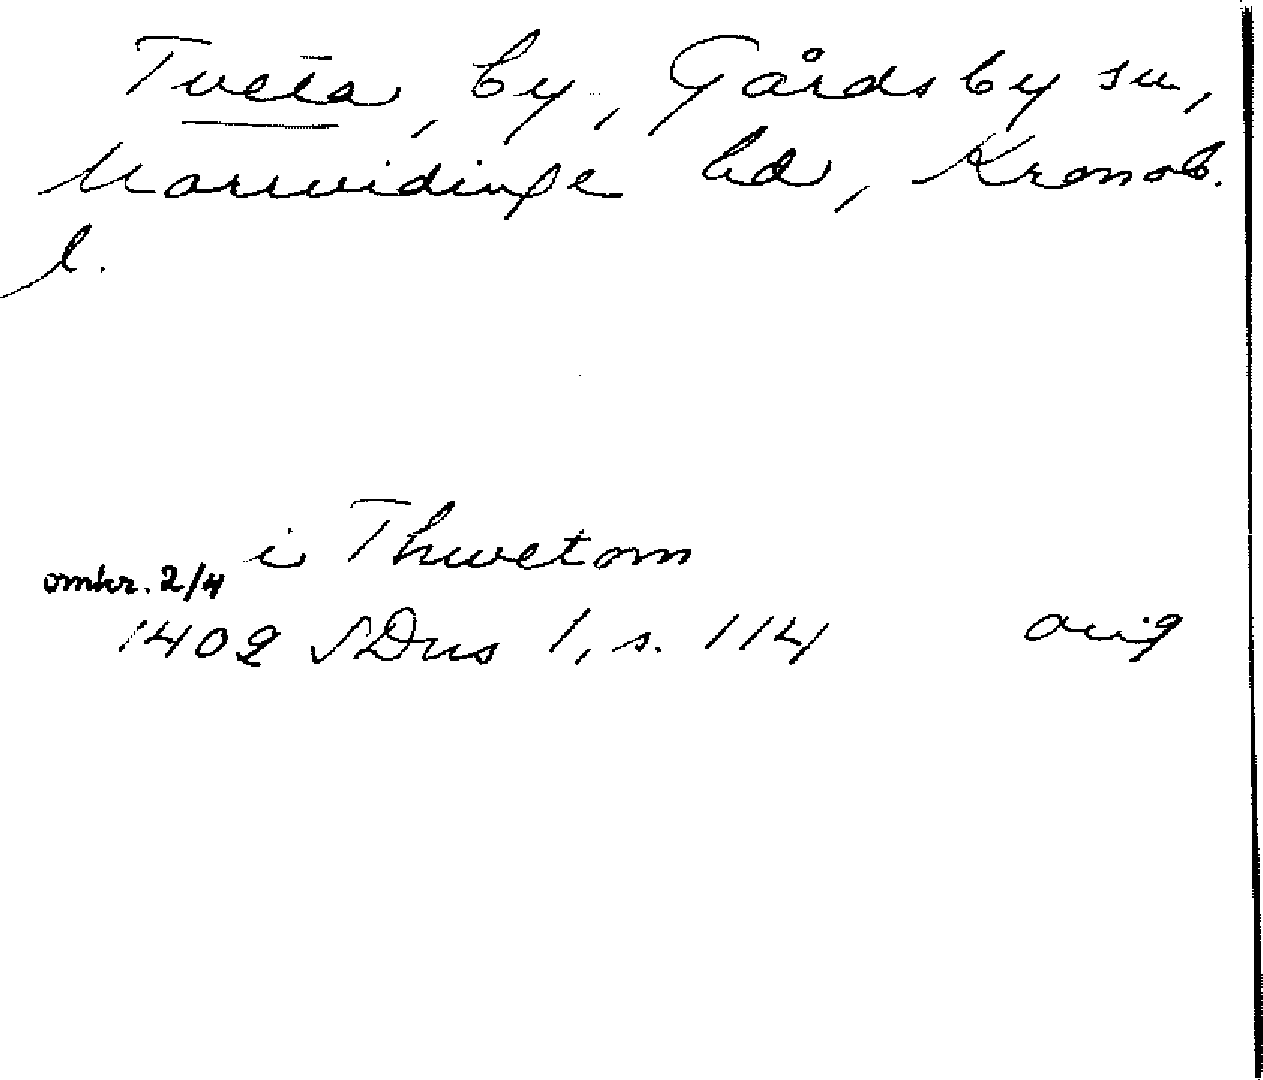 Tveta, by, Gårdsby sn,
Norrvidinge hd, Kronob.
l.
i Thwetom
omkr. 2/4
1402 SDns 1, s. 114 orig